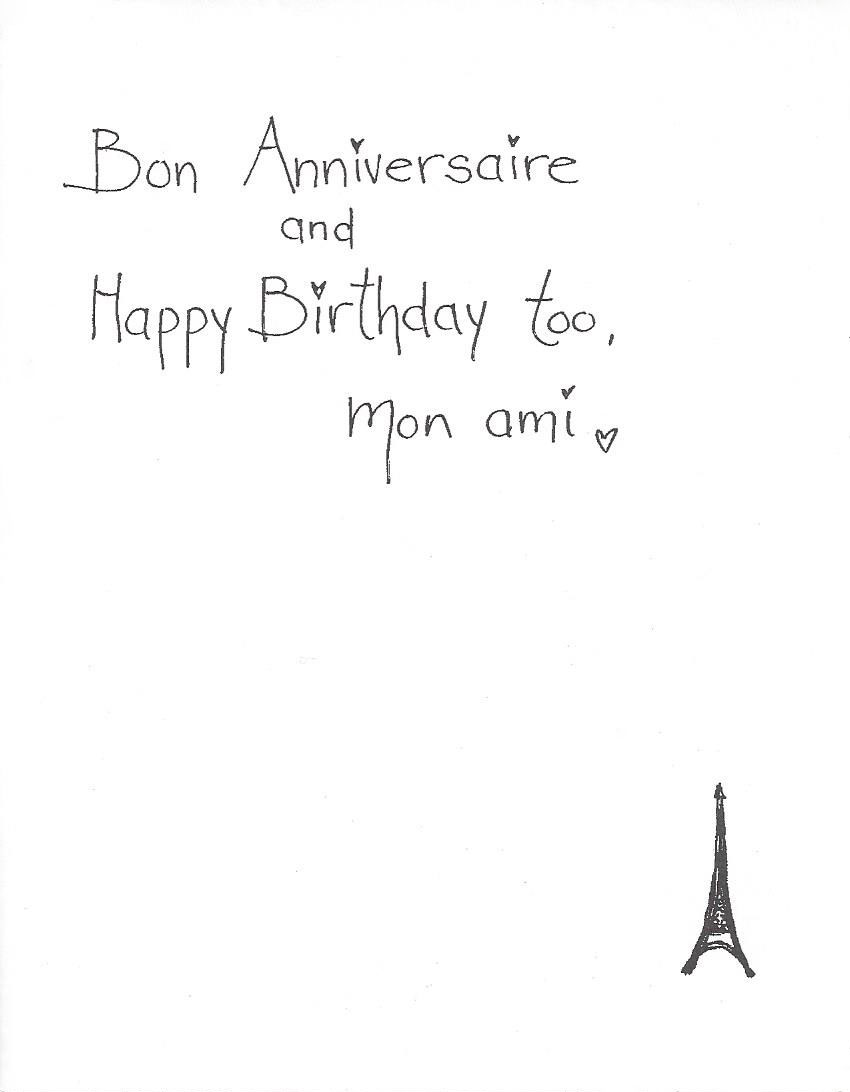 Bon Anniversaire
and
Happy Birthday too,
mon ami